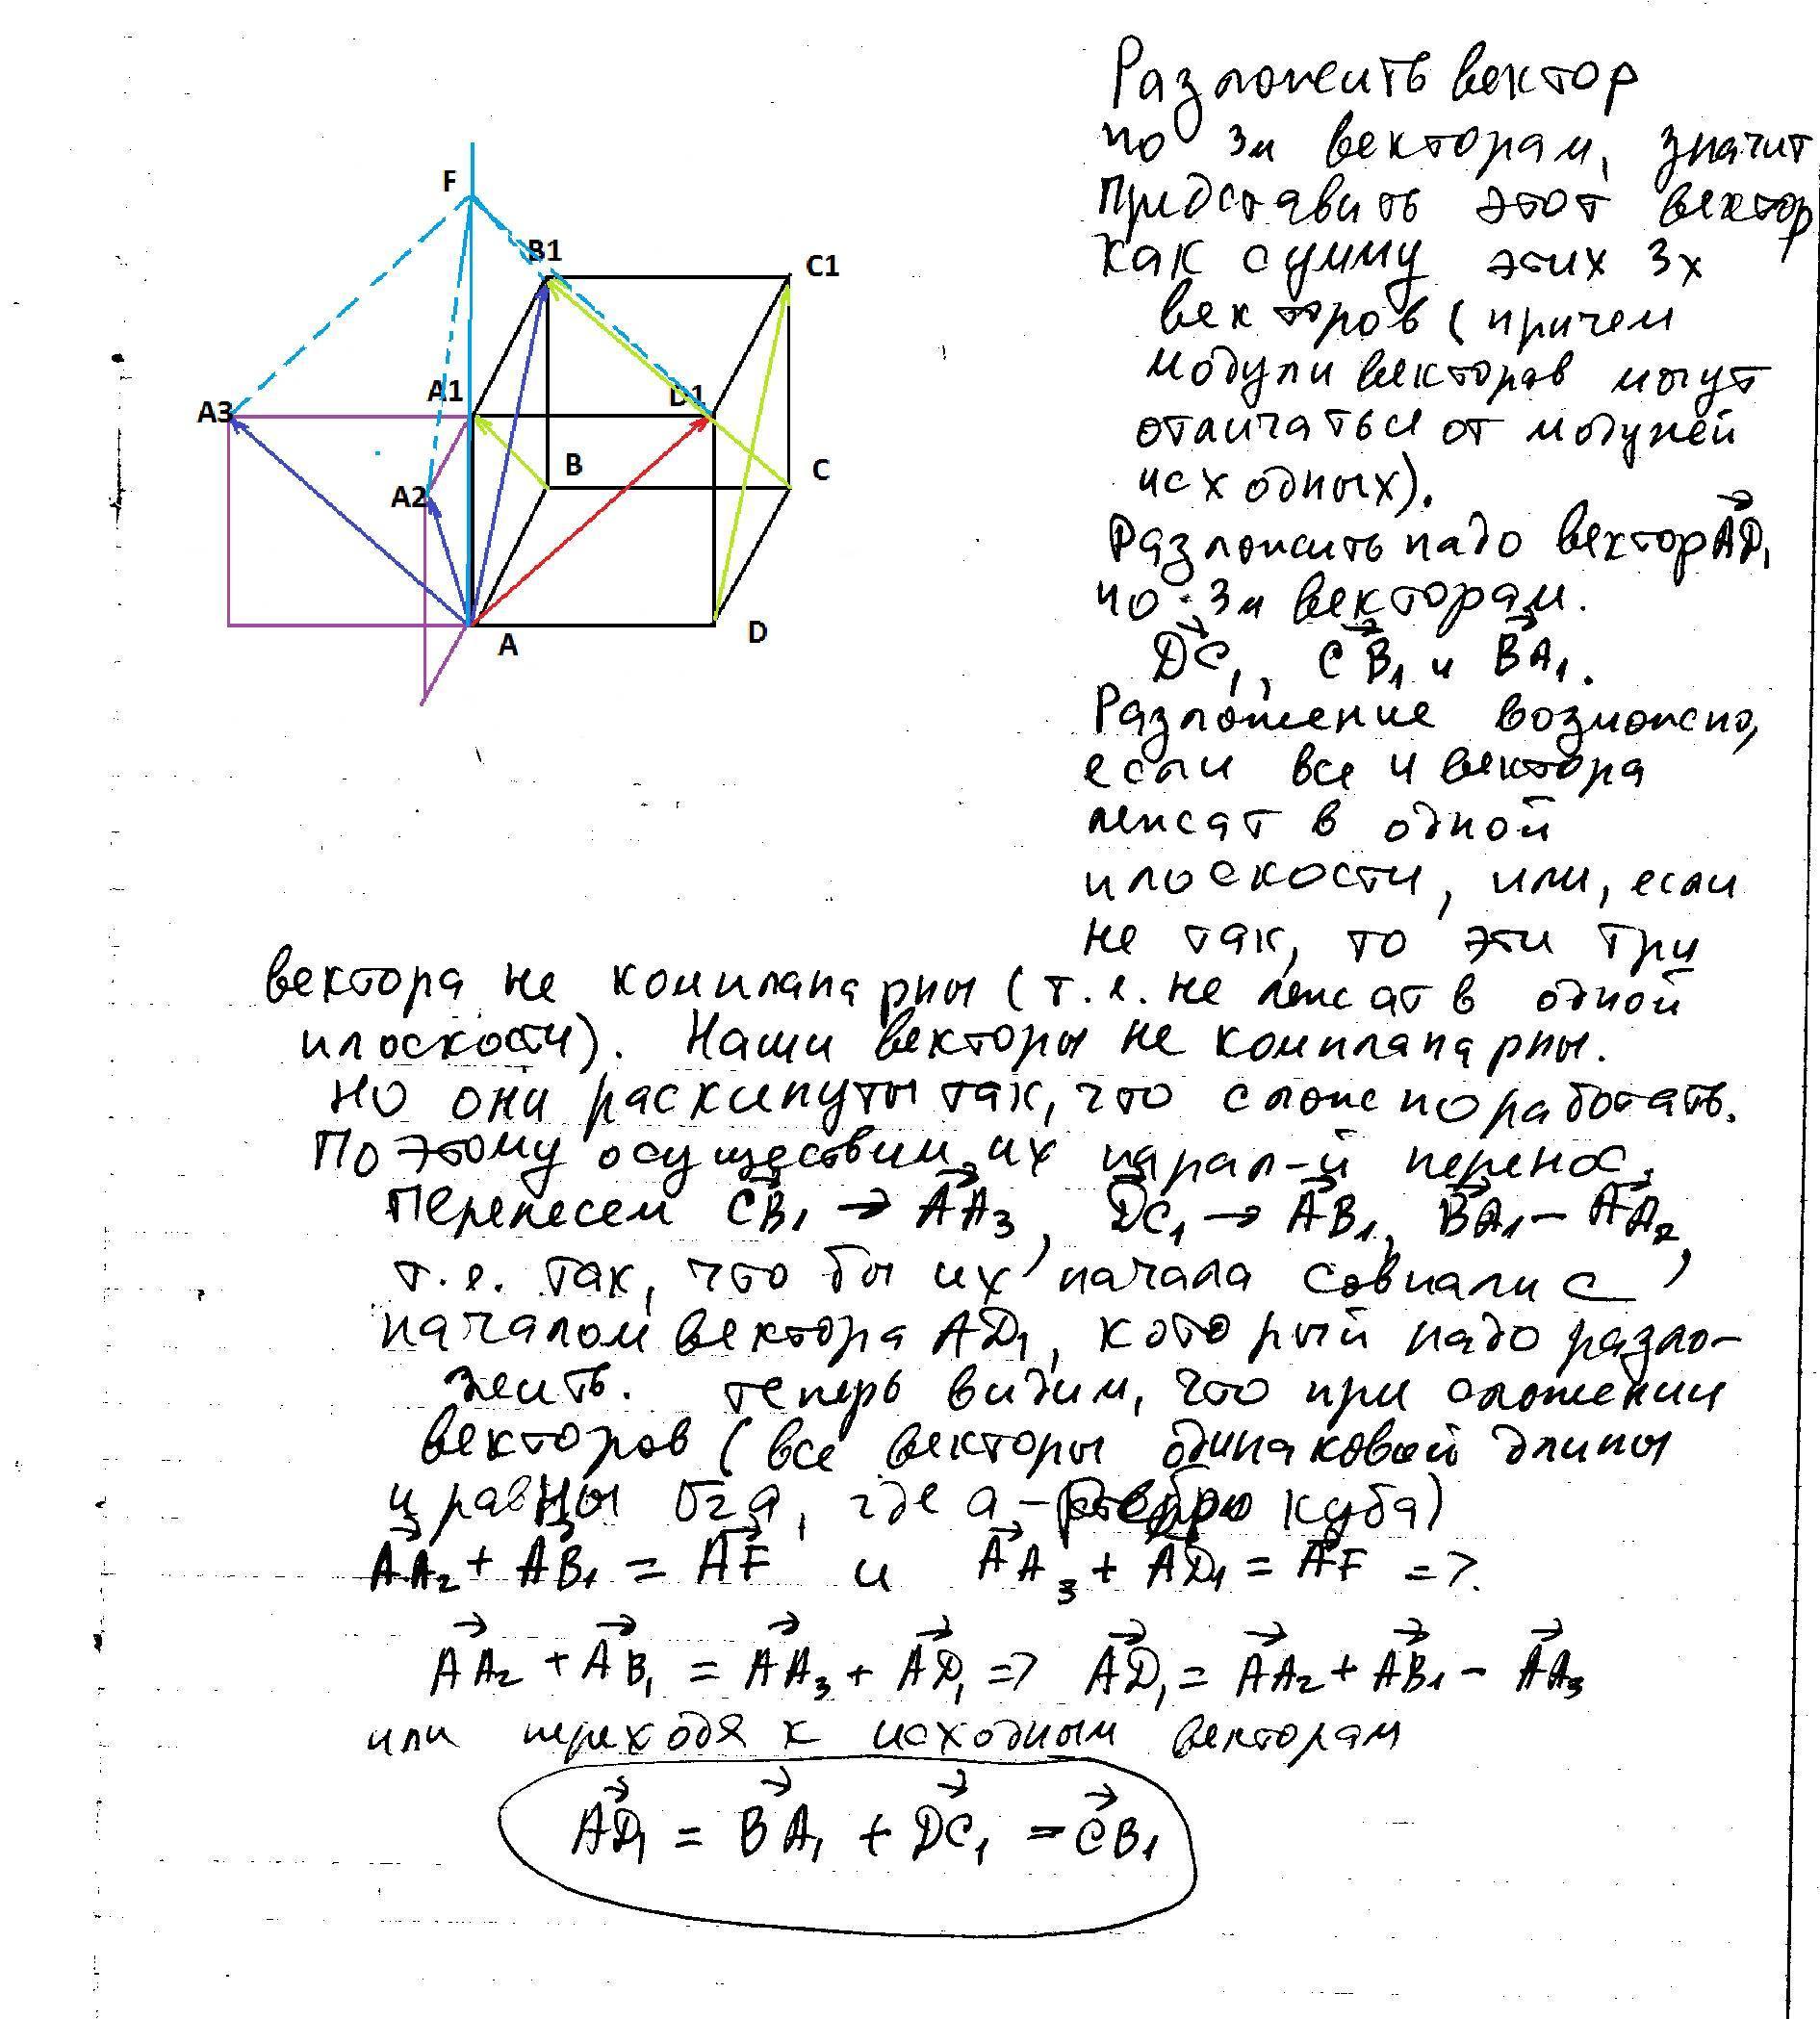 F
B1
C1
A1
D1
A3
B
C
A2
A
D
Разложить вектор
по 3м векторам, значит
представить этот вектор
как сумму этих 3х
векторов (причем
модули векторов могут
отличаться от модулей
исходных).
Разложить надо вектор AD₁
по 3м векторам.
DC₁, CB₁ и BA₁.
Разложение возможно,
если все 4 вектора
лежат в одной
плоскости, или, если
не так, то эти три
вектора не компланарны (т.е. не лежат в одной
плоскости). Наши векторы не компланарны.
Но они раскинуты так, что сложно работать.
Поэтому осуществим их парал-й перенос.
Перенесем CB₁ → AA₃, DC₁ → AB₁, BA₁ – AA₂,
т.е. так, что бы их начала совпали с
началом вектора AD₁, который надо разло-
жить. теперь видим, что при сложении
векторов (все векторы одинаковой длины
и равны √2a, где a – ребро куба)
AA₂ + AB₁ = AF и AA₃ + AD₁ = AF =>
AA₂ + AB₁ = AA₃ + AD₁ => AD₁ = AA₂ + AB₁ – AA₃
или переходя к исходным векторам
AD₁ = BA₁ + DC₁ – CB₁